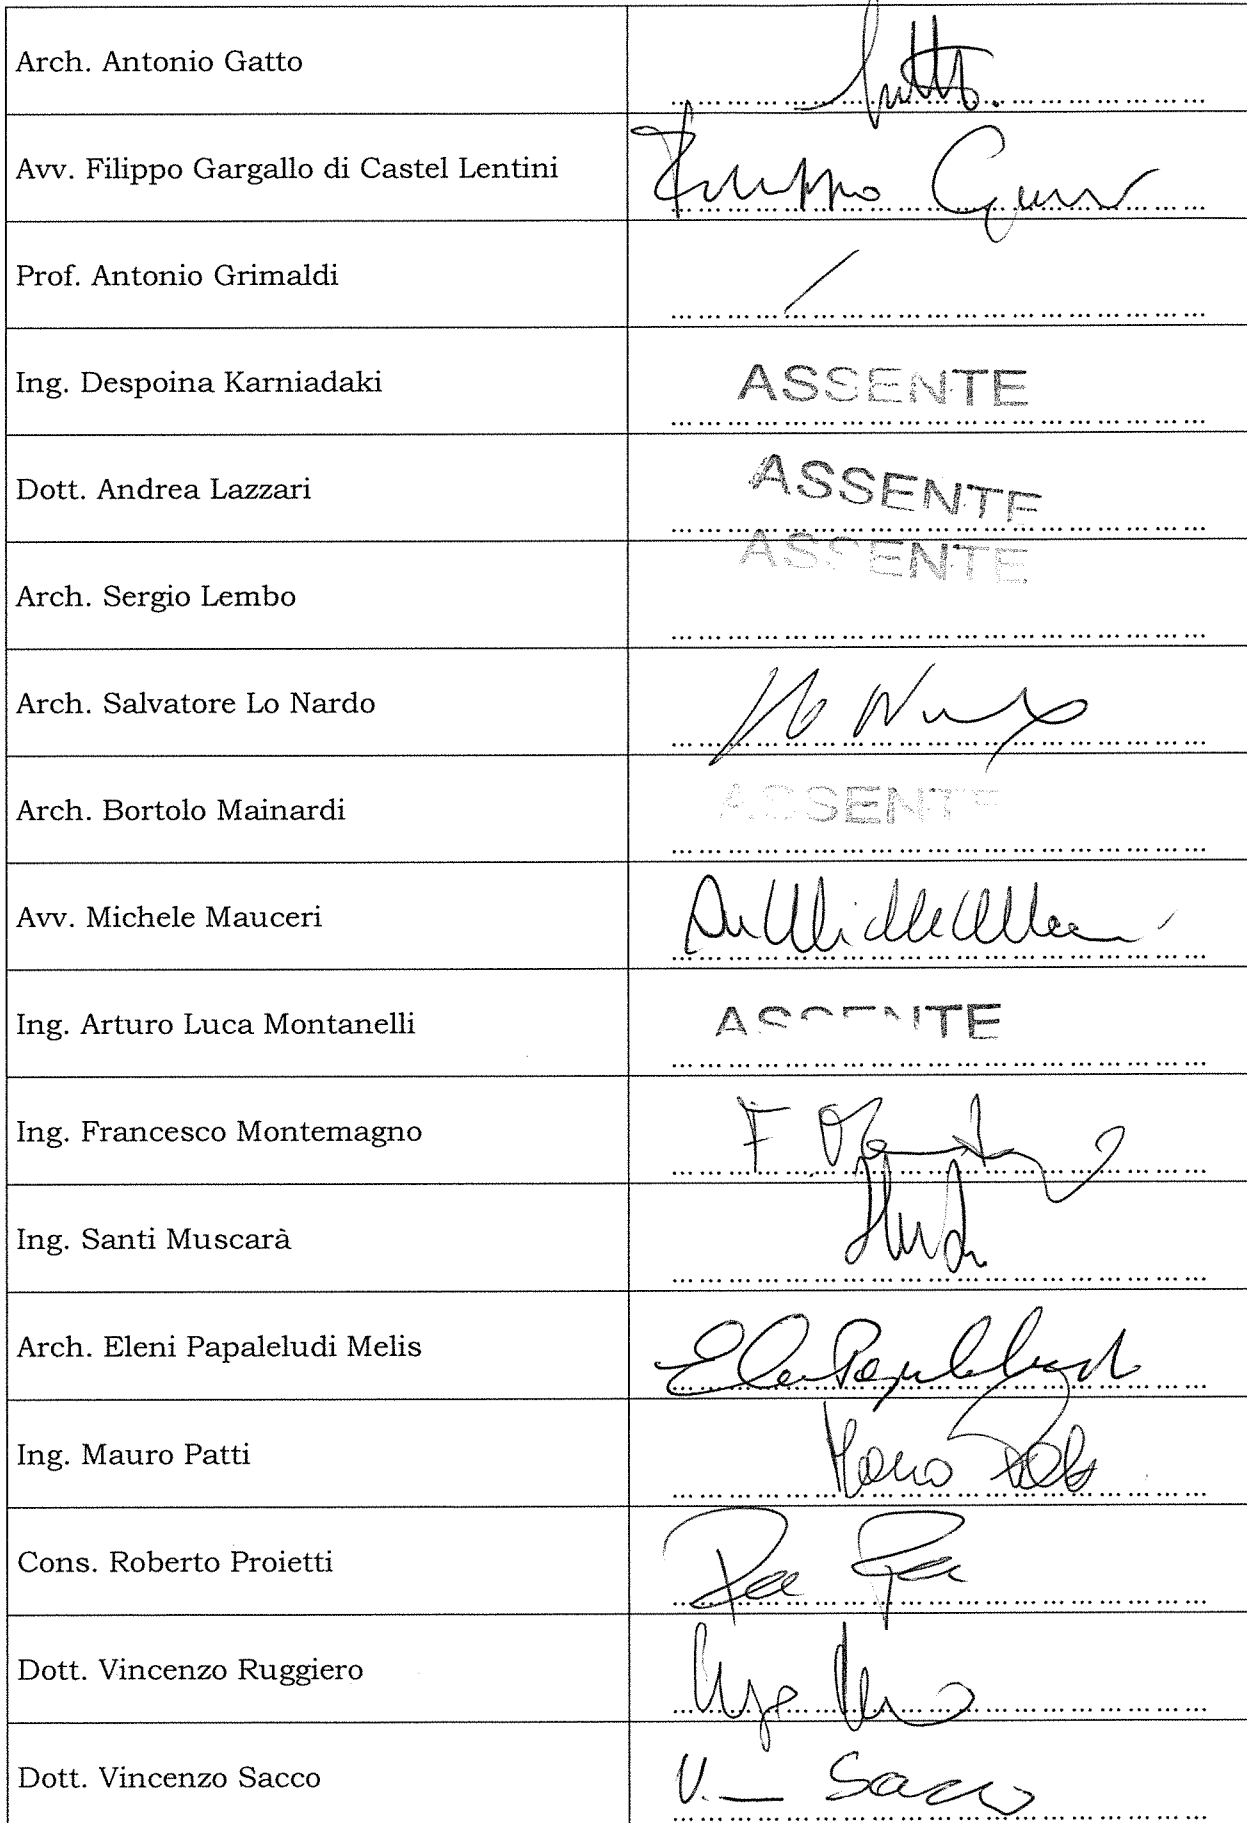 Arch. Antonio Gatto Gatto.
Avv. Filippo Gargallo di Castel Lentini Filippo
Prof. Antonio Grimaldi
Ing. Despoina Karniadaki ASSENTE
Dott. Andrea Lazzari ASSENTE
Arch. Sergio Lembo ASSENTE
Arch. Salvatore Lo Nardo
Arch. Bortolo Mainardi ASSENTE
Avv. Michele Mauceri
Ing. Arturo Luca Montanelli ASSENTE
Ing. Francesco Montemagno
Ing. Santi Muscarà
Arch. Eleni Papaleludi Melis
Ing. Mauro Patti
Cons. Roberto Proietti
Dott. Vincenzo Ruggiero
Dott. Vincenzo Sacco V. Sacco